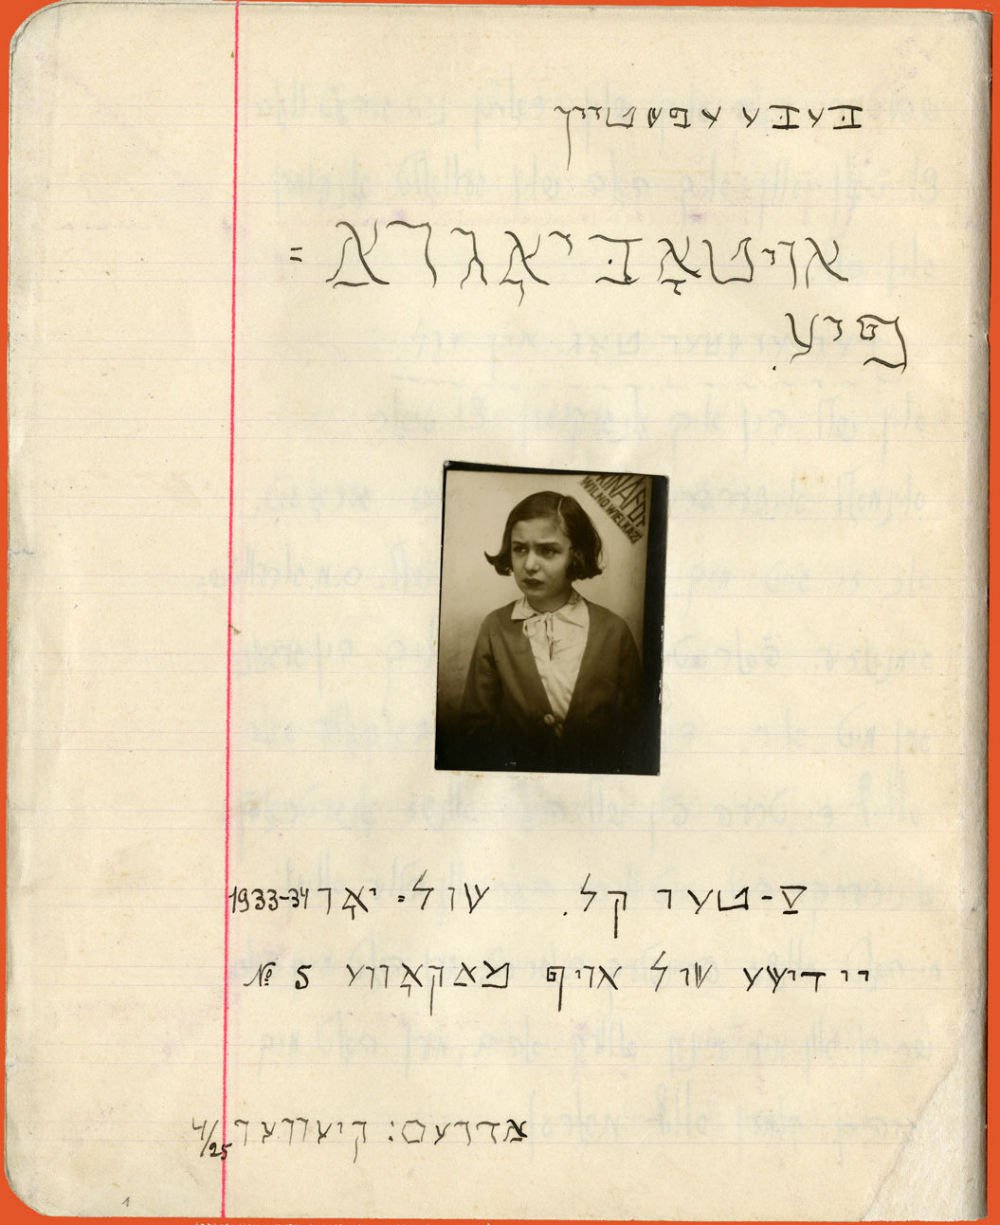 בעבע עפשטיין
אויטאָביאָגראַ=
פיע.
WILNO WIELKA
V-טער קל. שול=יאָר 1933-34
יידישע שול אויף מאַקאָווע № 5
אַדרעס: קיעווער 4/25
1